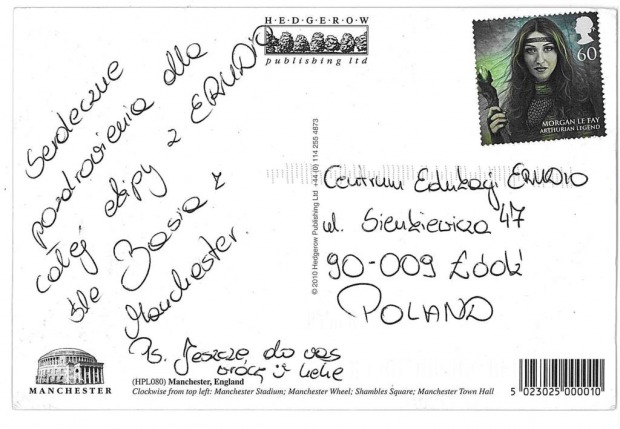 HEDGEROW
publishing ltd
60
MORGAN LE FAY
ARTHURIAN LEGEND
Serdeczne
pozdrowienia dla
całej ekipy z ERUDIO
śle Basia z
Manchester.
Ps. Jeszcze do was
wrócę hehe
© 2010 Hedgerow Publishing Ltd +44 (0) 114 255 4873
Centrum Edukacji ERUDIO
ul. Sienkiewicza 47
90-009 Łódź
POLAND
MANCHESTER
(HPL080) Manchester, England
Clockwise from top left: Manchester Stadium; Manchester Wheel; Shambles Square; Manchester Town Hall
5 023025 000010